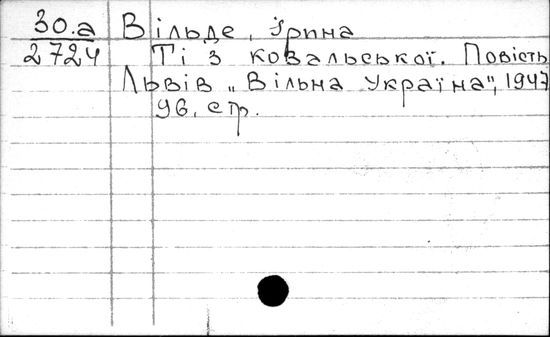 30.а Вільде, Ірина
2724 Ті з ковальської. Повість
Львів „Вільна Україна", 1947
96. стр.